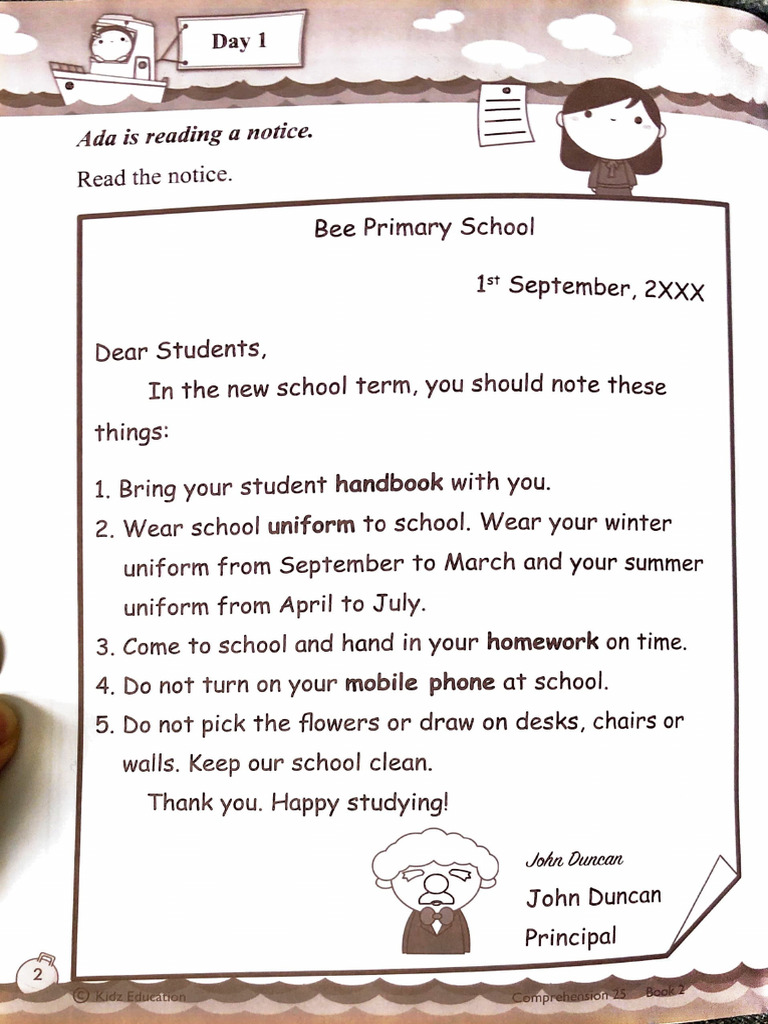 Day 1
Ada is reading a notice.
Read the notice.
Bee Primary School
1st September, 2XXX
Dear Students,
In the new school term, you should note these
things:
1. Bring your student handbook with you.
2. Wear school uniform to school. Wear your winter
uniform from September to March and your summer
uniform from April to July.
3. Come to school and hand in your homework on time.
4. Do not turn on your mobile phone at school.
5. Do not pick the flowers or draw on desks, chairs or
walls. Keep our school clean.
Thank you. Happy studying!
John Duncan
John Duncan
Principal
2
© Kidz Education
Comprehension 25 Book 2